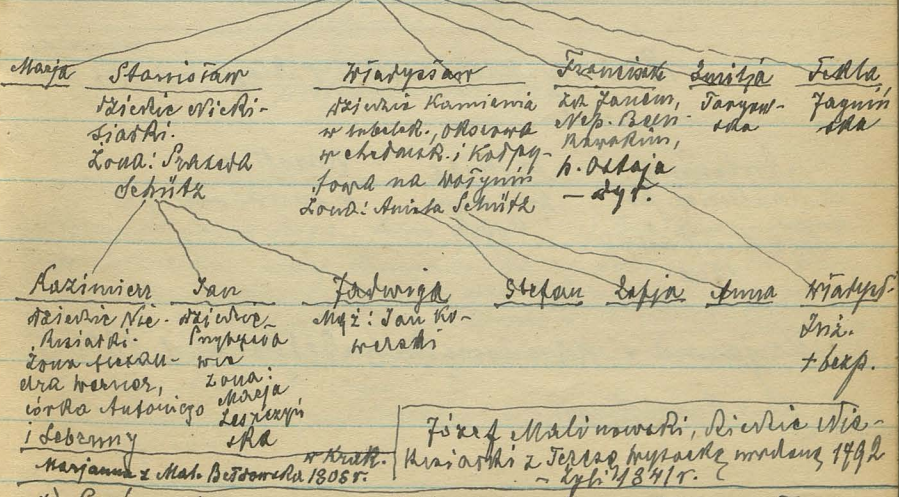 Marja
Stanisław
dziedzic Nieki-
siałki.
Żona: Prakseda
Schütz
Władysław
dziedzic Kamienia
w lubelsk., Oksowa
w chełmsk. i
towa na Wołyniu
Żona: Aniela Schütz
Franciszk
Nep.
h. Ostoja
Emilja
Tekla
Kazimierz
dziedzic Nie-
kisiałki.
Żona Aleksan-
dra Werner,
córka Antoniego
i
Jan
dziedzic
Żona:
Marja
Leszczyń
ska
Jadwiga
Mąż: Jan Ko-
werski
Stefan
Zofja
Anna
Władysł.
Inż.
+ bezp.
w Krak.
Marjanna z Mal. Bełdowska 1805 r.
Józef Malinowski, dziedzic Nie-
kisiałki z Teresą Wysocką urodzoną 1792
- żyli 1841 r.